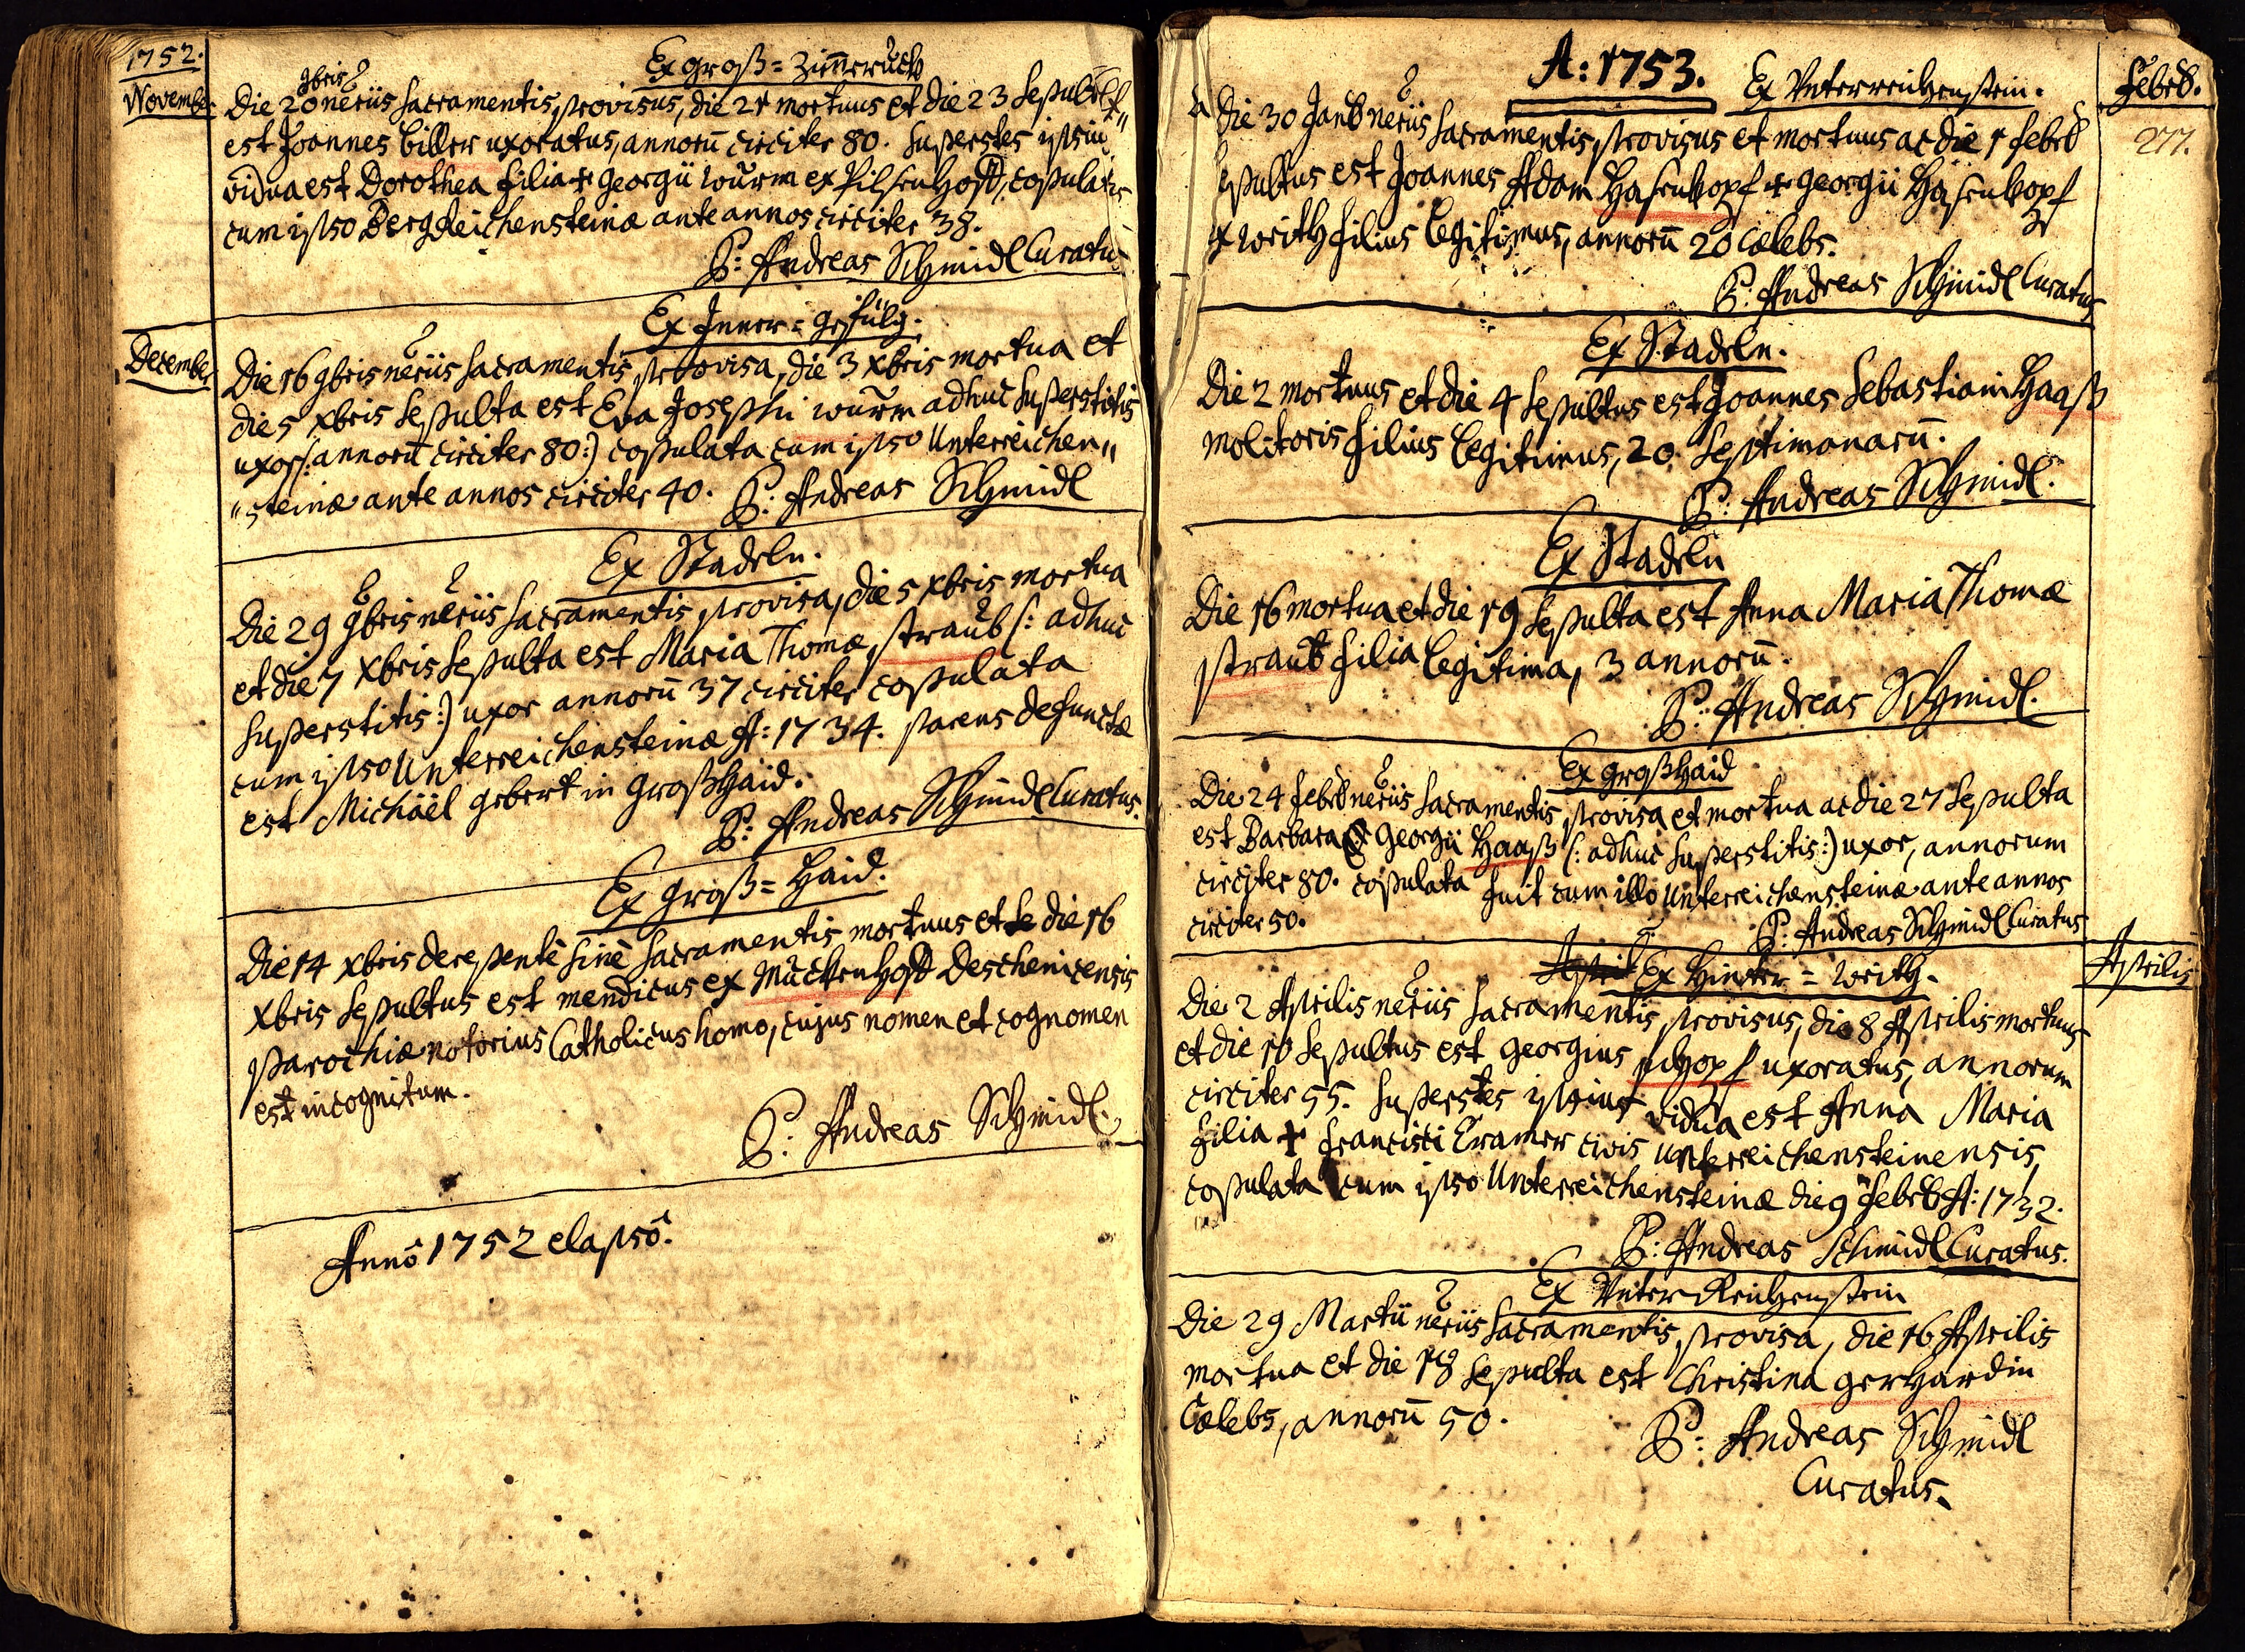 1752.
November
Ex Groß=Zimeruck
9bris
Die 20 neriis Sacramentis provisus, die 21 mortuus et die 23 Sepult
est Joannes Biller uxoratus, annorū circiter 80. Superstes ipsius
vidua est Dorothea filia + Georgii Würm ex Pilsenhoff, copulata
cum ipso Bergreichensteinæ ante annos circiter 38.
P: Andreas Schmidl Curatus
Ex Inner=Gefülz.
December
Die 16 9bris neriis Sacramentis provisa, die 3 Xbris mortua et
die 5 Xbris Sepulta est Eva Josephi Würm adhuc Superstitis
uxor (: annorū circiter 80:) copulata cum ipso Unterreichen„
„steinæ ante annos circiter 40. P: Andreas Schmidl
Ex Stadeln.
Die 29 9bris neriis Sacramentis provisa, die 5 Xbris mortua
et die 7 Xbris Sepulta est Maria Thomæ Straub (: adhuc
Superstitis:) uxor annorū 37 circiter copulata
cum ipso Unterreichensteinæ A: 1734. parens defunctæ
est Michäel Gebert in Großhaid.
P: Andreas Schmidl Curatus.
Ex Groß=Haid.
Die 14 Xbris derepentè sinè Sacramentis mortuus et die 16
Xbris Sepultus est mendicus ex Mückenhoff Deschenicensis
Parochiæ notorius Catholicus homo, cujus nomen et cognomen
est incognitum.
P: Andreas Schmidl.
Annô 1752 elapsô.
A: 1753.
Ex Unterreichenstein.
Febrū.
277.
Die 30 Janū neriis Sacramentis provisus et mortuus ac die 1 Febrū
Sepultus est Joannes Adam Hasenkopf + Georgii Hasenkopf
ex Writh filius legitimus, annorū 20 Cælebs.
P: Andreas Schmidl Curatus
Ex Stadeln.
Die 2 mortuus et die 4 Sepultus est Joannes Sebastiani Haaß
molitoris filius legitimus, 20 Septimanarū.
P: Andreas Schmidl.
Ex Stadeln
Die 16 mortua et die 19 Sepulta est Anna Maria Thomæ
Straub filia legitima, 3 annorū.
P: Andreas Schmidl.
Ex Großhaid
Die 24 Febrū neriis Sacramentis provisa et mortua ac die 27 Sepulta
est Barbara Georgii Haaß (: adhuc Superstitis:) uxor, annorum
circiter 80. copulata fuit cum illo Unterreichensteinæ ante annos
circiter 50.
P: Andreas Schmidl Curatus
Aprilis
Ex Hinter=Writh.
Die 2 Aprilis neriis Sacramentis provisus, die 8 Aprilis mortuus
et die 10 Sepultus est Georgius Schopf uxoratus, annorum
circiter 55. Superstes ipsius vidua est Anna Maria
filia + Francisci Cramer civis Unterreichensteinensis,
copulata cum ipso Unterreichensteinæ die 9 Febrū A: 1732.
P: Andreas Schmidl Curatus.
Ex Unter Reichenstein
Die 29 Martii neriis Sacramentis provisa, die 16 Aprilis
mortua et die 18 Sepulta est Christina Gerhardin
Cælebs, annorū 50.
P: Andreas Schmidl
Curatus.